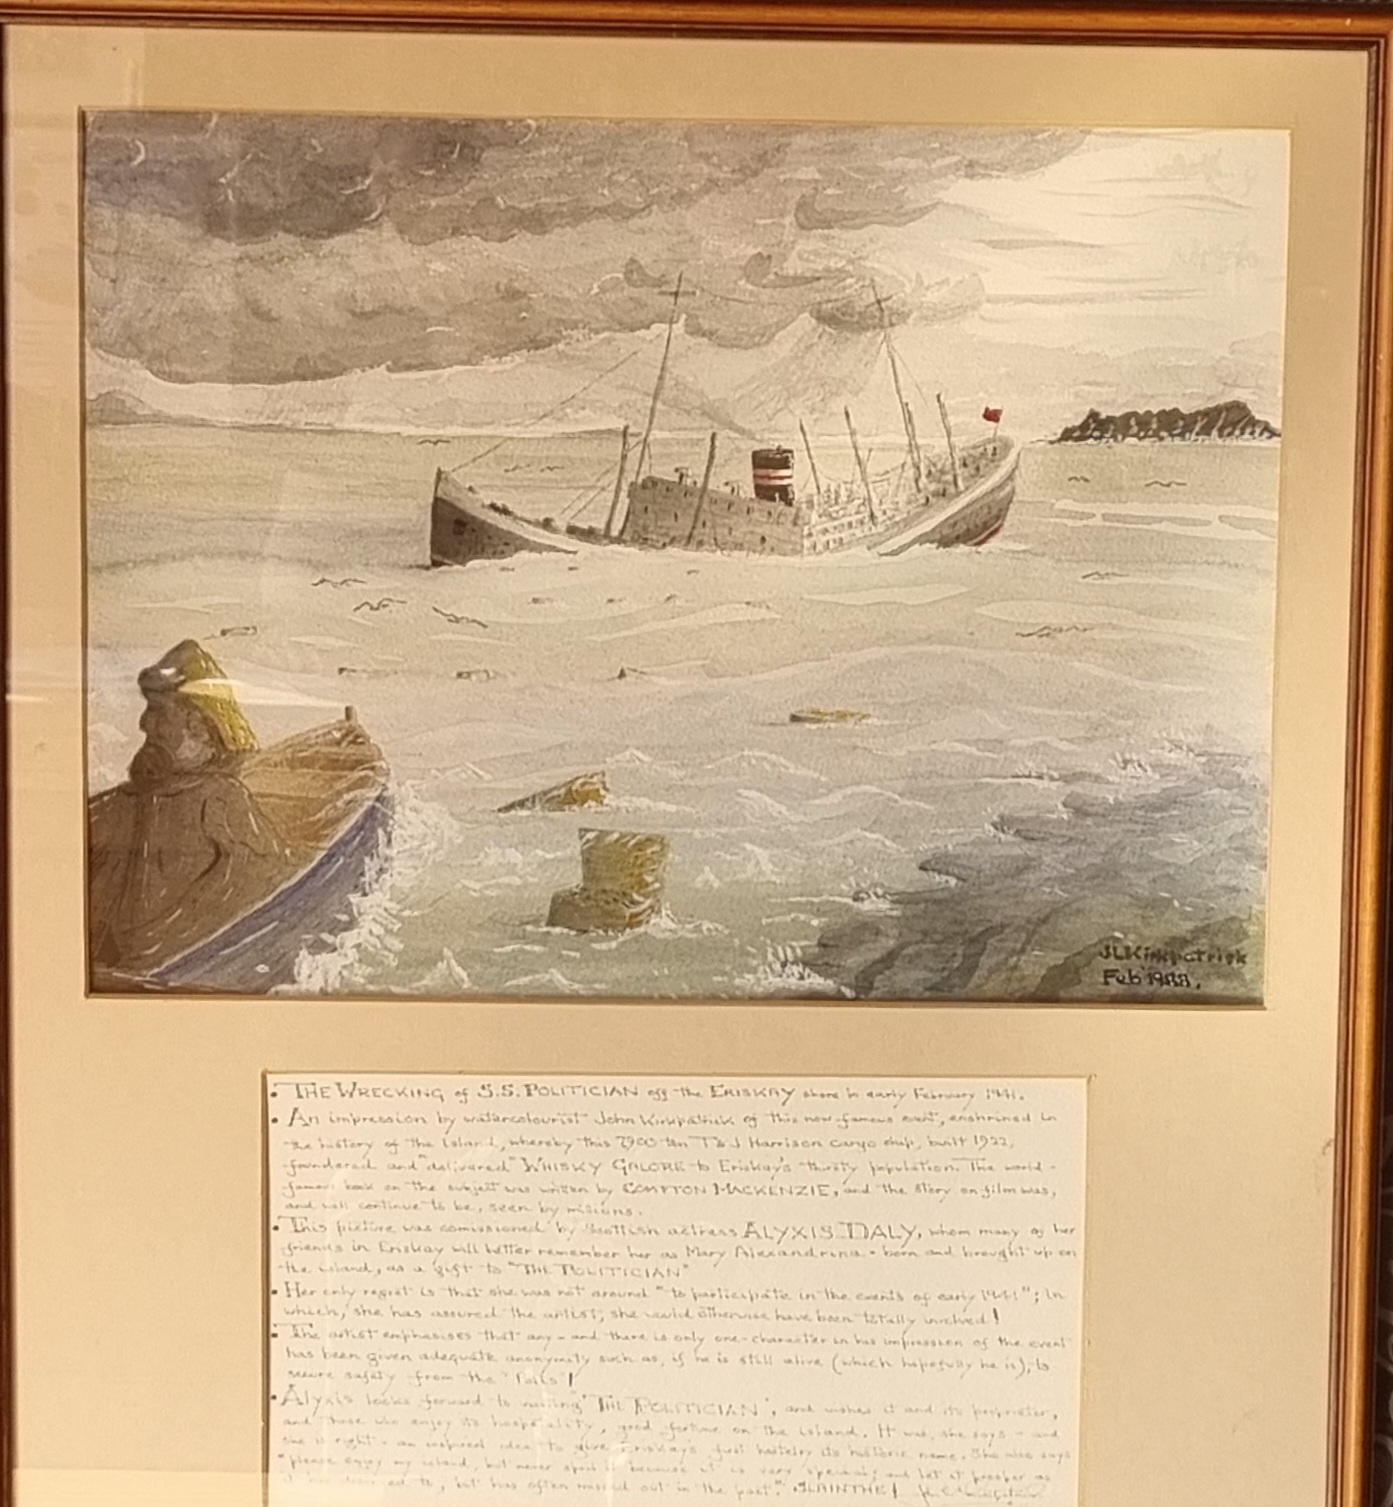 JLKirkpatrick
Feb 1988.
• THE WRECKING of S.S. POLITICIAN off the ERISKAY shore in early February 1941.
• An impression by watercolourist John Kirkpatrick of this now-famous event, enshrined in
the history of the island, whereby this 7900 ton T & J Harrison cargo ship, built 1922,
foundered and "delivered" WHISKY GALORE to Eriskay's thirsty population. The world-
famous book on the subject was written by COMPTON MACKENZIE, and the story on film was,
and will continue to be, seen by millions.
• This picture was comissioned by Scottish actress ALYXIS DALY, whom many of her
friends in Eriskay will better remember her as Mary Alexandrina - born and brought up on
the island, as a gift to "THE POLITICIAN"
• Her only regret is that she was not around "to participate in the events of early 1941"; in
which, she has assured the artist, she would otherwise have been totally involved!
• The artist emphasises that any - and there is only one - character in his impression of the event
has been given adequate anonymity such as, if he is still alive (which hopefully he is), to
secure safety from the
• Alyxis looks forward to visiting "THE POLITICIAN", and wishes it and its proprietor,
and those who enjoy its hospitality, good fortune on the island. It was, she says - and
she is right - an inspired idea to give Eriskay's first hostelry its historic name. She also says
"please enjoy my island, but never spoil it because it is very special; and let it prosper as
it has deserved to, but has often missed out in the past." SLAINTHE!